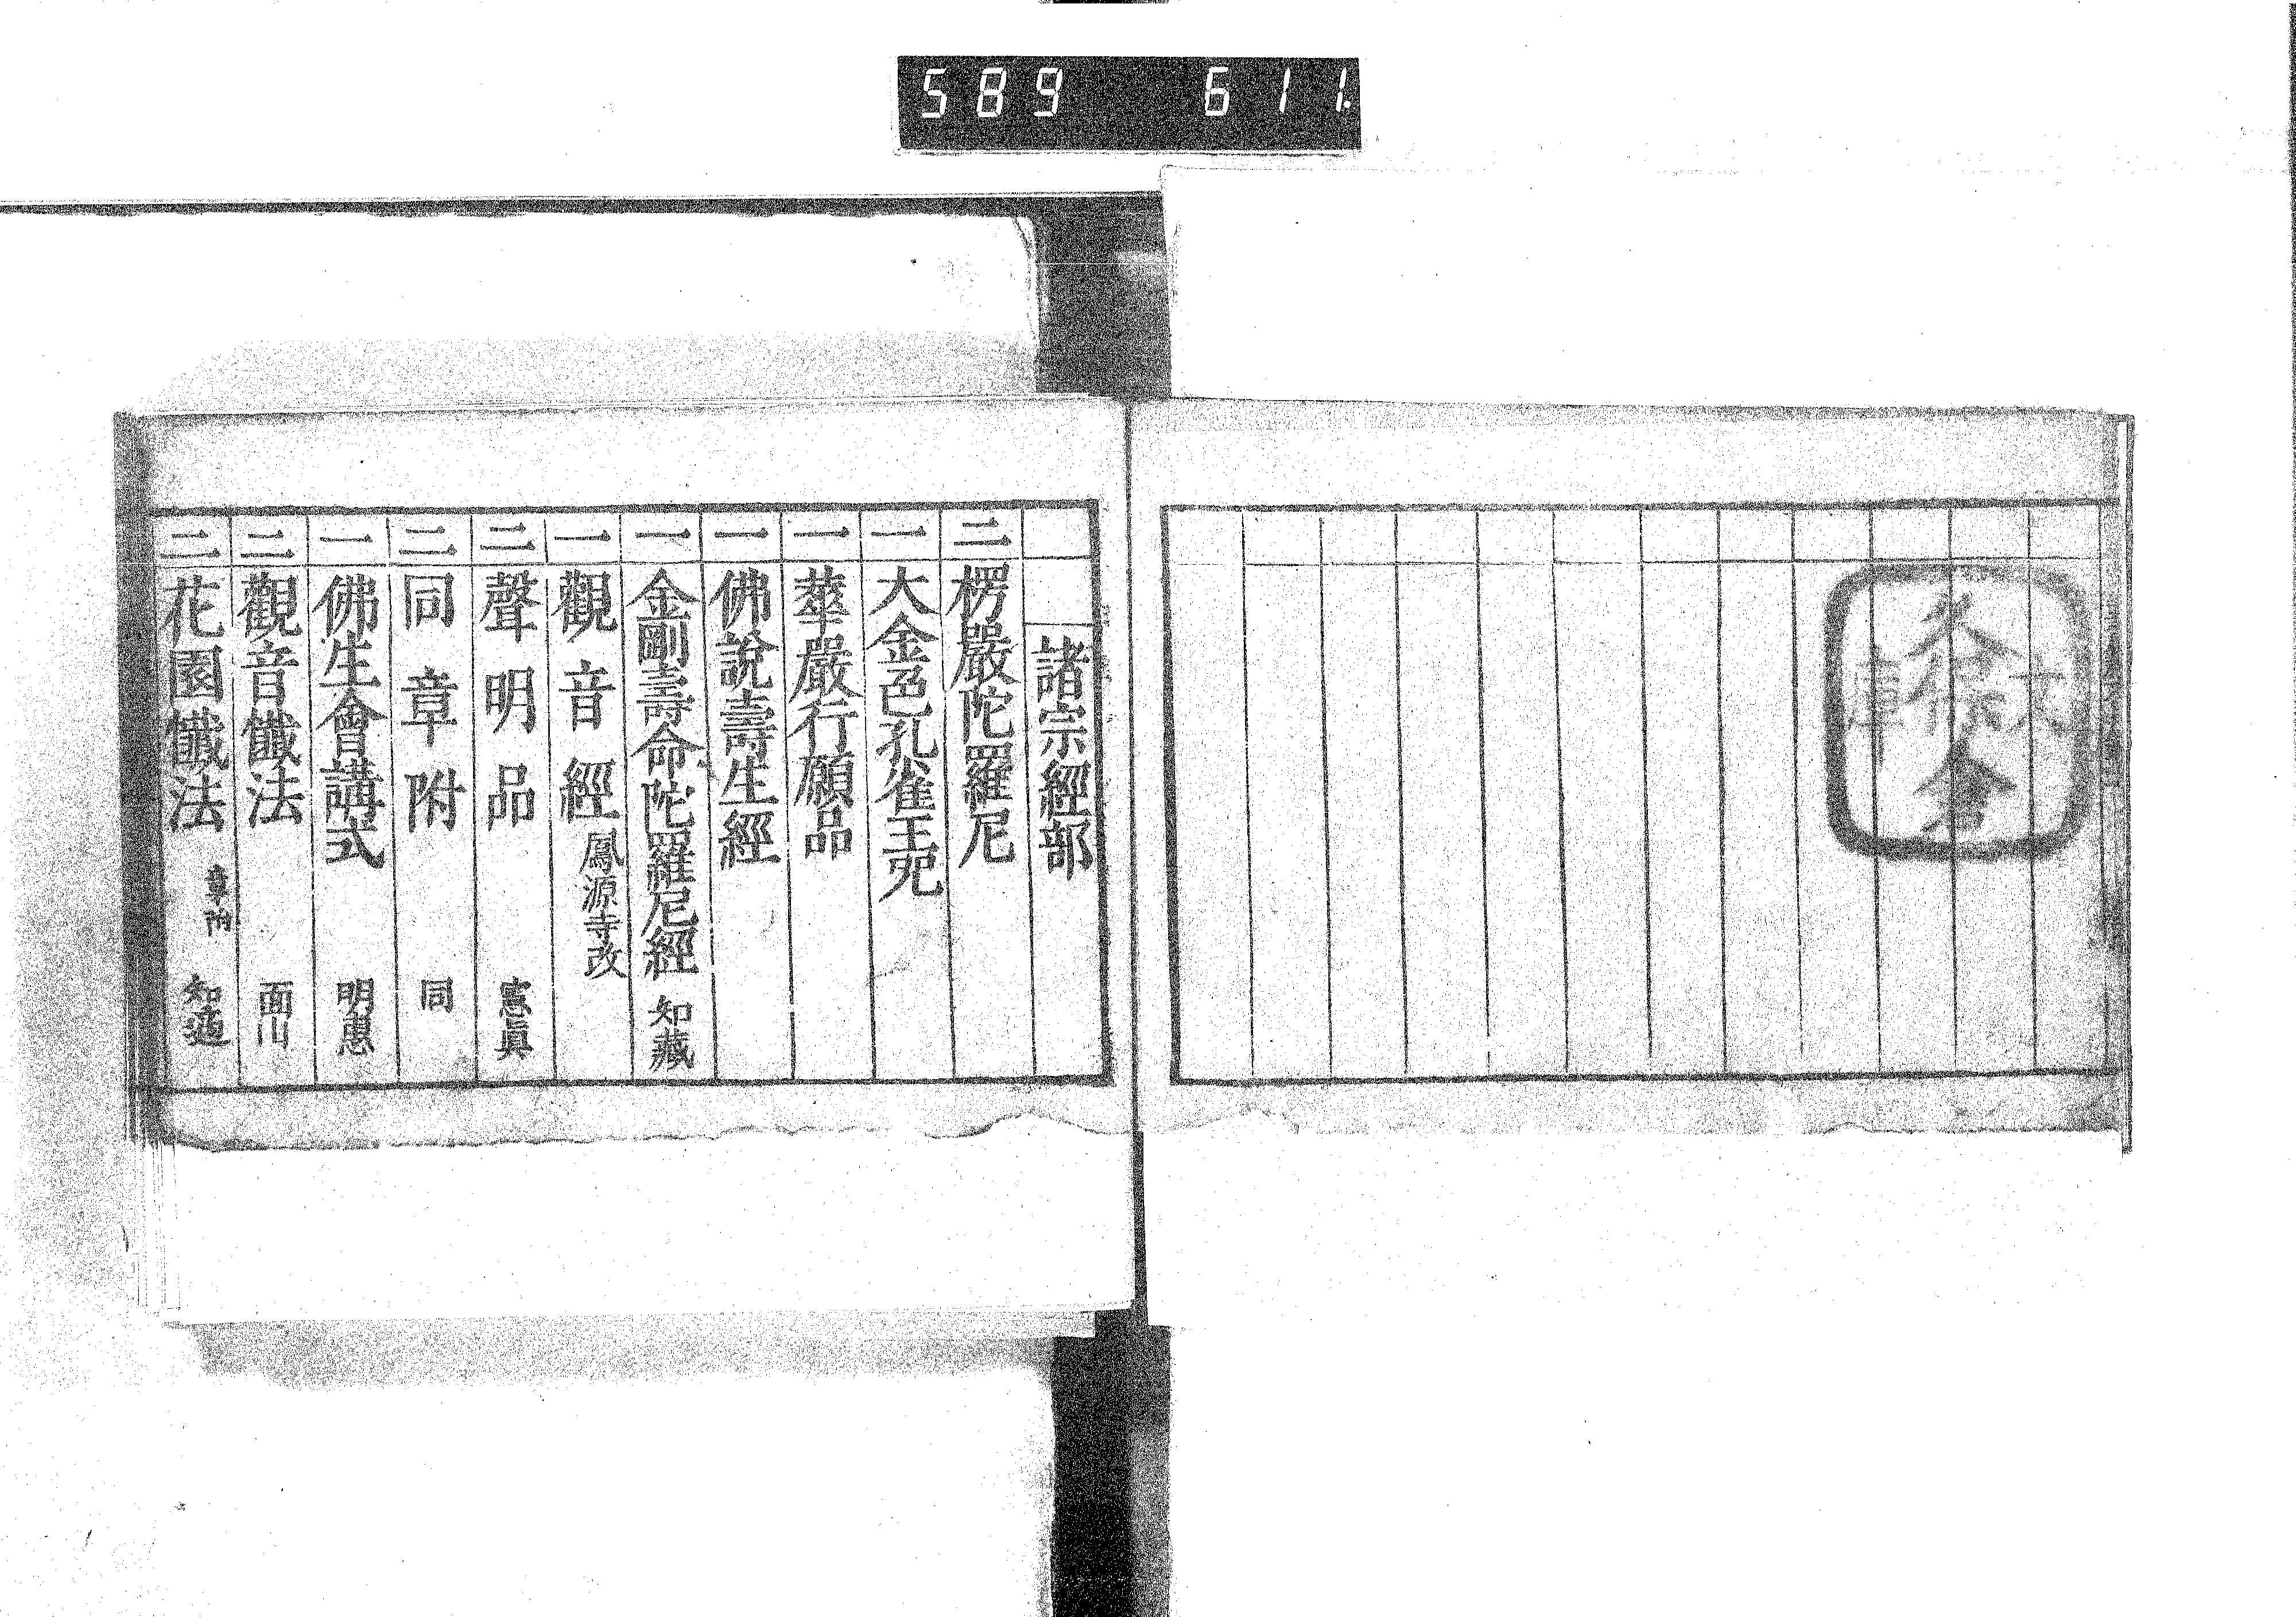 589 611.
諸宗經部
二 楞嚴陀羅尼
一 大金色孔雀王咒
一 華嚴行願品
一 佛說壽生經
一 金剛壽命陀羅尼經 知藏
一 觀音經 鳳源寺改
二 聲明品 憲眞
二 同章附 同
一 佛生會講式 明惠
二 觀音懺法 面山
二 花園懺法 章附
文
庫